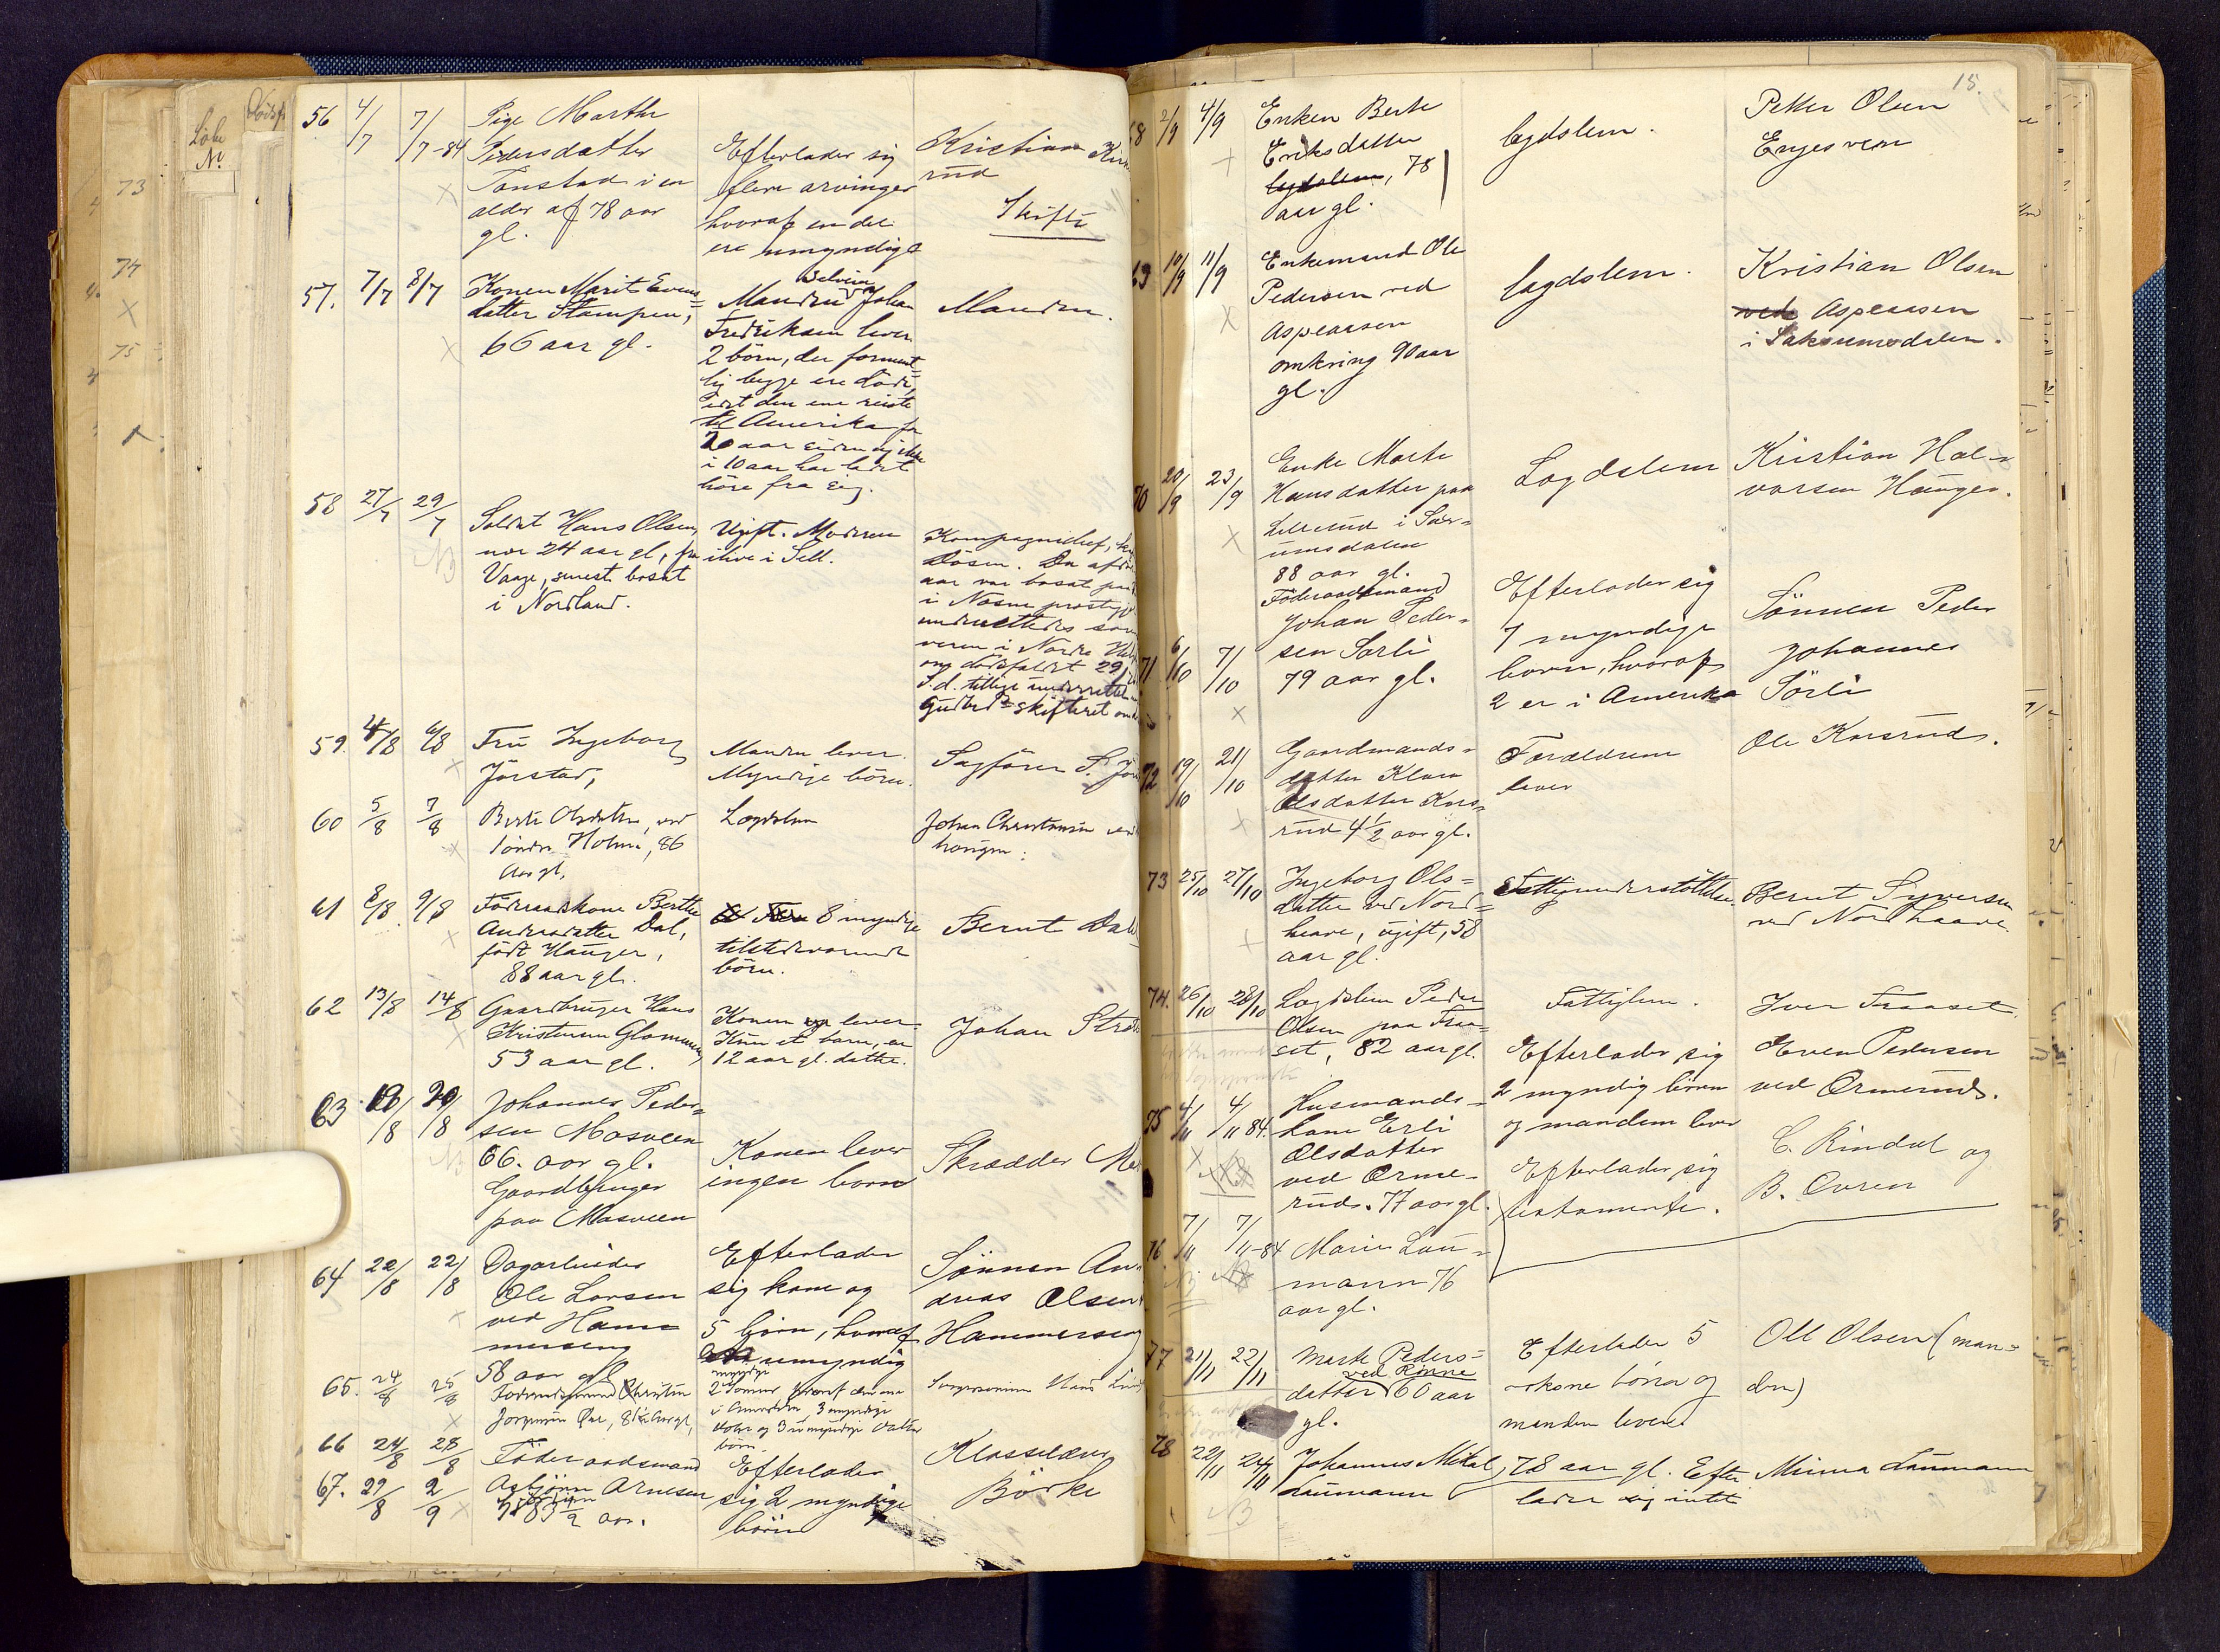 Löbe
No.
Dødsf
73
74
75
56 4/7 7/7-84 Pige Marthe
Pedersdatter
Tonstad i en
alder af 78 aar
gl.
Efterlader sig
flere arvinger
hvoraf en del
ere umyndige
Kristian
rud
Skifte
57. 7/7 8/7 Konen Marit Evens=
datter Stampen,
66 aar gl.
Selveier
Manden Johan
Fredriksen lever
2 börn, der forment=
lig begge ere döde,
idet den ene reiste
til Amerika for
20 aar siden og ikke
i 10 aar har ladet
höre fra sig.
Manden.
58 27/7 29/7 Soldat Hans Olsen,
24 aar gl, fra
Vaage, senest bosat
i Nordland.
NB
Ugift. Moderen
ilive i Sell.
Kompagnichef,
Dösen. Den afdöde
aar var bosat paa
i Næsne prestegj
underrettedes
veren i Nordre
om dödsfaldet 29/
S.d. tillige underrettet
Gudbrds skifteret om
59. 4/8 6/8 Fru Ingeborg
Jörstad,
Manden lever.
Myndige börn.
Sagförer S. Jör
60 5/8 7/8 Berte Olsdatter, ved
söndre Holme, 86
Aar gl,
Lægdslem
Johan Christiansen
haugen.
61 8/8 9/8 Föderaadskone Berthe
Andersdatter Dal,
födt Hauger,
88 aar gl.
8 myndige
tilstedeværende
börn.
Bernt Dal
62 13/8 14/8 Gaardbruger Hans
Kristensen Glommen,
53 aar gl.
Konen lever
Kun et barn, en
12 aar gl. datter.
Johan Strø
63 19/8 20/8 Johannes Peder=
sen Mosveen
66. aar gl.
Gaardbruger
paa Mosveen
NB
Konen lever
ingen born
Skrædder
64 22/8 22/8 Dagarbeider
Ole Larsen
ved Ham=
merseng
58 aar gl
Efterlader
sig kone og
5 börn, hvoraf
umyndig
Sönnen An=
dreas Olsen
Hammerseng
65. 24/8 25/8 Foderaadsmand Christen
Jorgensen Dal, 81½ Aar gl,
myndige
2 Sönner hvoraf den ene
i Amerika, 3 myndige
dotre og 3 umyndige Datter
börn.
Hans
66 24/8 28/8 Föderaadsmand
67. 29/8 2/9 Asbjörn Arnesen
83½ aar.
Efterlader
sig 2 myndige
börn
Klasselærer
Börke
15.
68 2/9 4/9 Enken Berte
Eriksdatter
lægdslem, 78
aar gl.
lægdslem.
Petter Olsen
Engesveen
69 10/9 11/9 Enkemand Ole
Pedersen ved
Aspeaasen
omkring 90 aar
gl.
lagdslem.
Kristian Olsen
ved Aspeaasen
i Saksumsdalen.
70 20/9 23/9 Enke Marte
Hansdatter paa
Lillerud i Sax=
umsdalen
88 aar gl.
Lagdslem
Kristian Hal=
vorsen Hauger.
71 6/10 7/10 Föderaadsmand
Johan Peder=
sen Sorli
79 aar gl.
Efterlader sig
7 myndige
born, hvoraf
2 er i Amerika
Sönnen Peder
Johannes
Sörli
72 19/10 21/10 Gaardmands=
datter Klara
Olsdatter Kors=
rud 4½ aar gl.
Foraldrene
lever
Ole Korsrud.
73 25/10 27/10 Ingeborg Ols=
datter ved Nord=
haave, ugift, 58
aar gl.
Fattigunderstöttelse.
Bernt Syversen
ved Nordhaave
74. 26/10 28/10 Lagdslem Peder
Olsen paa Fraa=
set, 82 aar gl.
Fattiglem.
Iver Fraaset.
75 4/11 4/11 84. Husmands=
kone Erli
Olsdatter
ved Orme=
ruds. 77 aar gl.
Efterlader sig
2 myndig börn
og manden lever
Even Pedersen
ved Ormeruds.
76. 7/11 7/11-84 Marie Lau=
mann 76
aar gl.
NB
Efterlader sig
testamente.
C. Rindal og
B. Owren
77 21/11 22/11 Marte Peders=
datter ved Rinne 60 aar
gl.
Efterlader 5
voksne börn og
manden lever.
Ole Olsen (man=
den)
78 22/11 24/11 Johannes Mikal
Laumann
78 aar gl. Efter
lader sig intet
Minna Laumann
NB